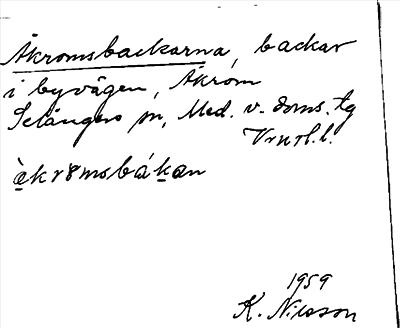 Åkromsbackarna, backar
i byvägen, Åkrom
Selångers sn, Med. v. doms. tg
Vrnrl. l.
 àkr8msbákan
1959
K. Nilsson